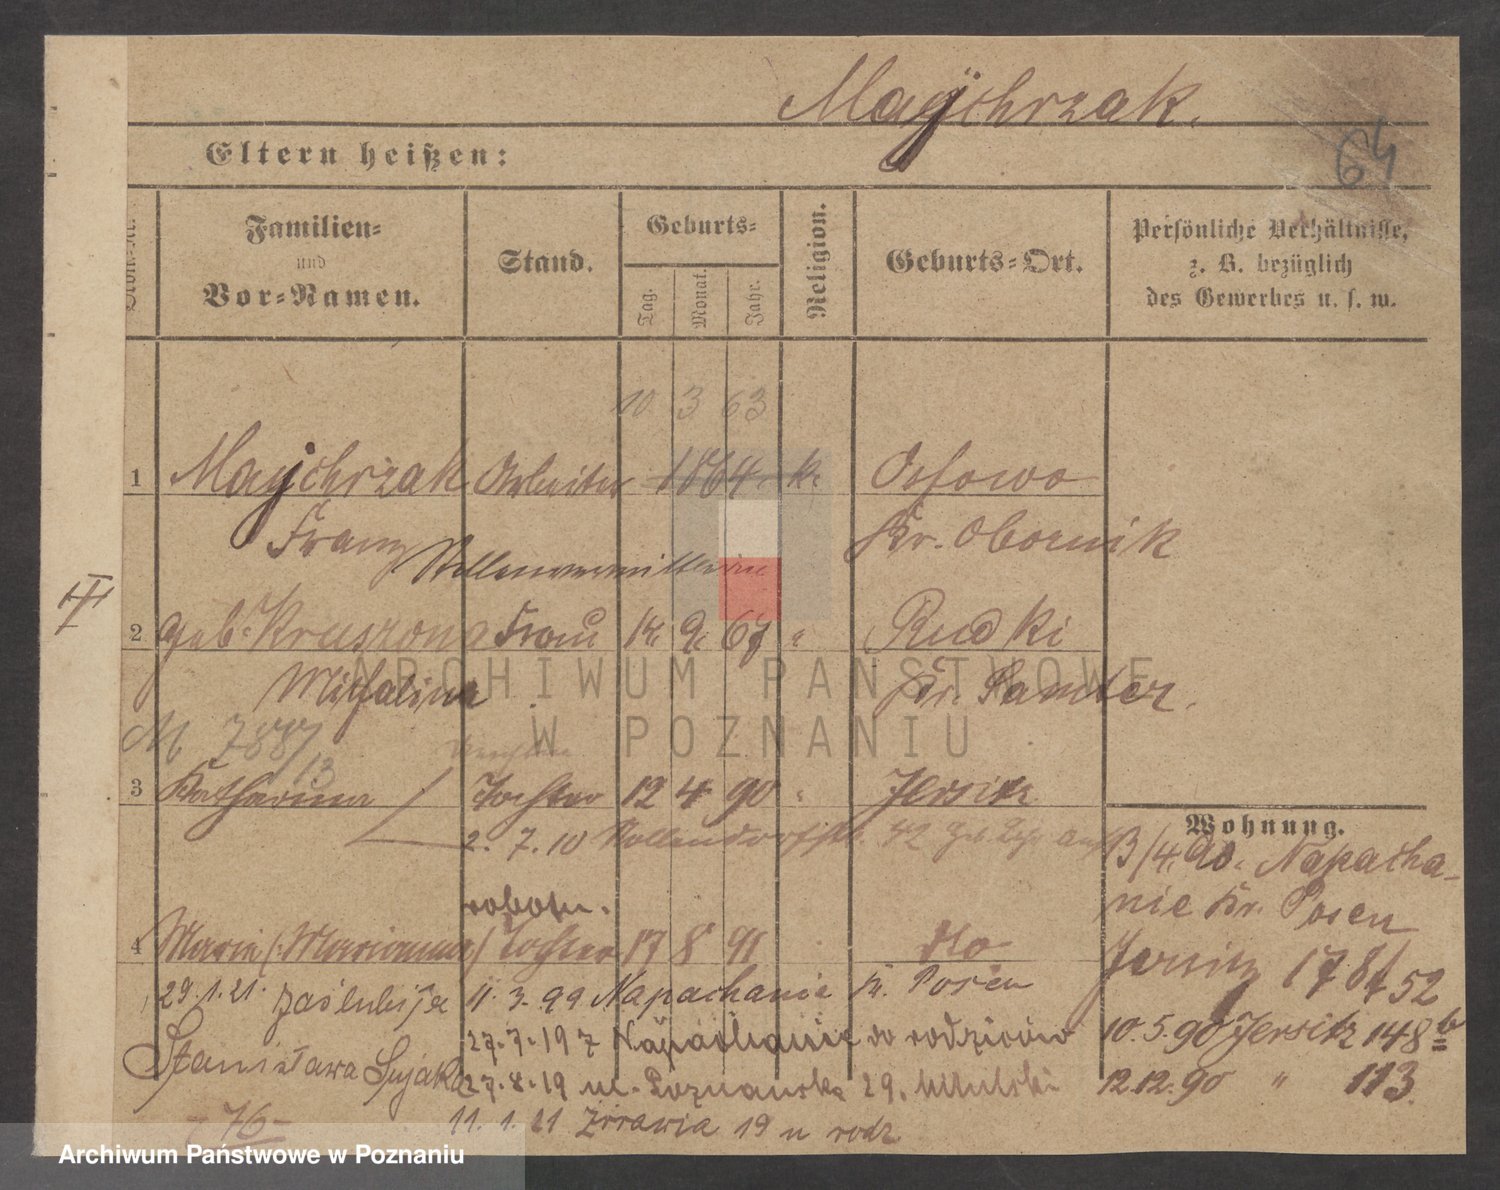 Majchrzak.
64
Eltern heißen:
Familien- und Vor-Namen.
Stand.
Geburts-
Tag.
Monat.
Jahr.
Religion.
Geburts-Ort.
Persönliche Verhältnisse,
z. B. bezüglich
des Gewerbes u. s. w.
10 3 63
1 Majchrzak Arbeiter 1864. k. Ossowo
Franz Kr. Obornik
Stellenvermittlerin
III
2 geb. Kruszona Frau 14. 9. 67 " Rudki
Michalina Kr. Samter.
M 7887
13
3 Katharina Tochter 12 4 90 " Jersitz
2. 7. 10 Nollendorfstr. 42
Wohnung.
3/4. 90. Napacha-
nie Kr. Posen
robotn.
4 Maria (Marianna) Tochter 17 8 91 dto
Jersitz 17 8/4 52
29.1.21. zaślubiła 11. 3. 99 Napachanie Kr. Posen
27.7.197 Napachanie do rodziców
10.5.90 Jersitz 148b
Stanisława Sujaka 27.8.19 ul. Poznańska 29.
12.12.90 " 113.
11. 1. 21 Żórawia 19 u rodz
- 76 -
ARCHIWUM PAŃSTWOWE
W POZNANIU
Archiwum Państwowe w Poznaniu